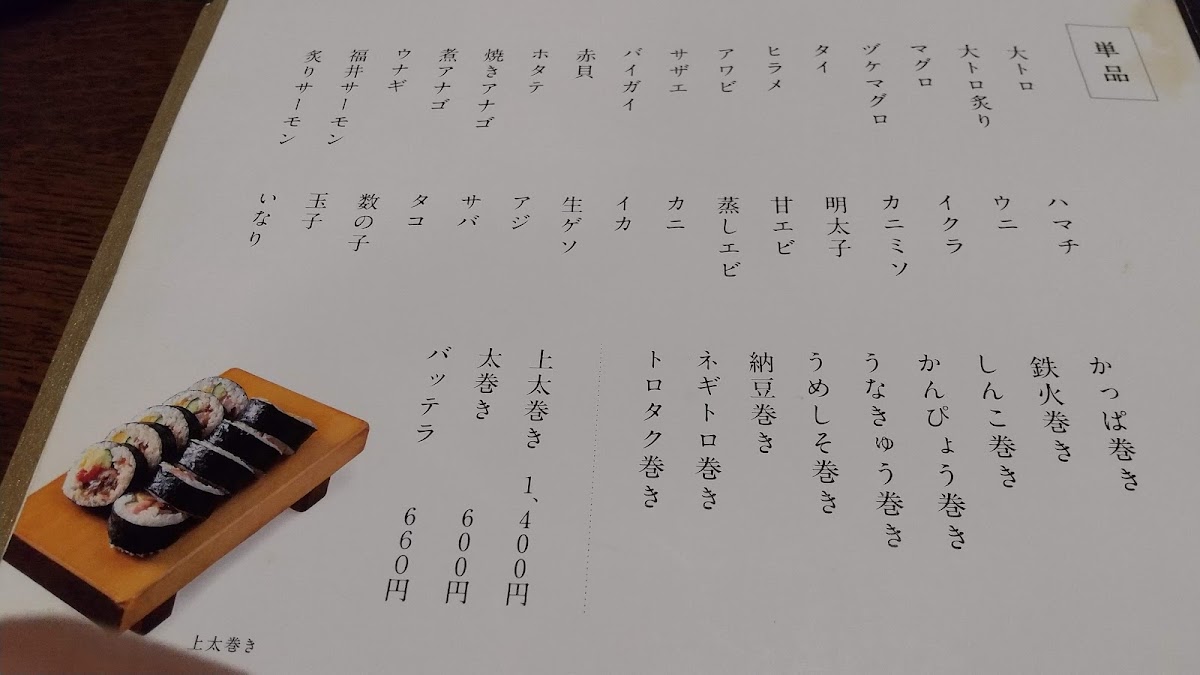 単品
大トロ
大トロ炙り
マグロ
ヅケマグロ
タイ
ヒラメ
アワビ
サザエ
バイガイ
赤貝
ホタテ
焼きアナゴ
煮アナゴ
ウナギ
福井サーモン
炙りサーモン
ハマチ
ウニ
イクラ
カニミソ
明太子
甘エビ
蒸しエビ
カニ
イカ
生ゲソ
アジ
サバ
タコ
数の子
玉子
いなり
かっぱ巻き
鉄火巻き
しんこ巻き
かんぴょう巻き
うなきゅう巻き
うめしそ巻き
納豆巻き
ネギトロ巻き
トロタク巻き
上太巻き 1、400円
太巻き 600円
バッテラ 660円
上太巻き